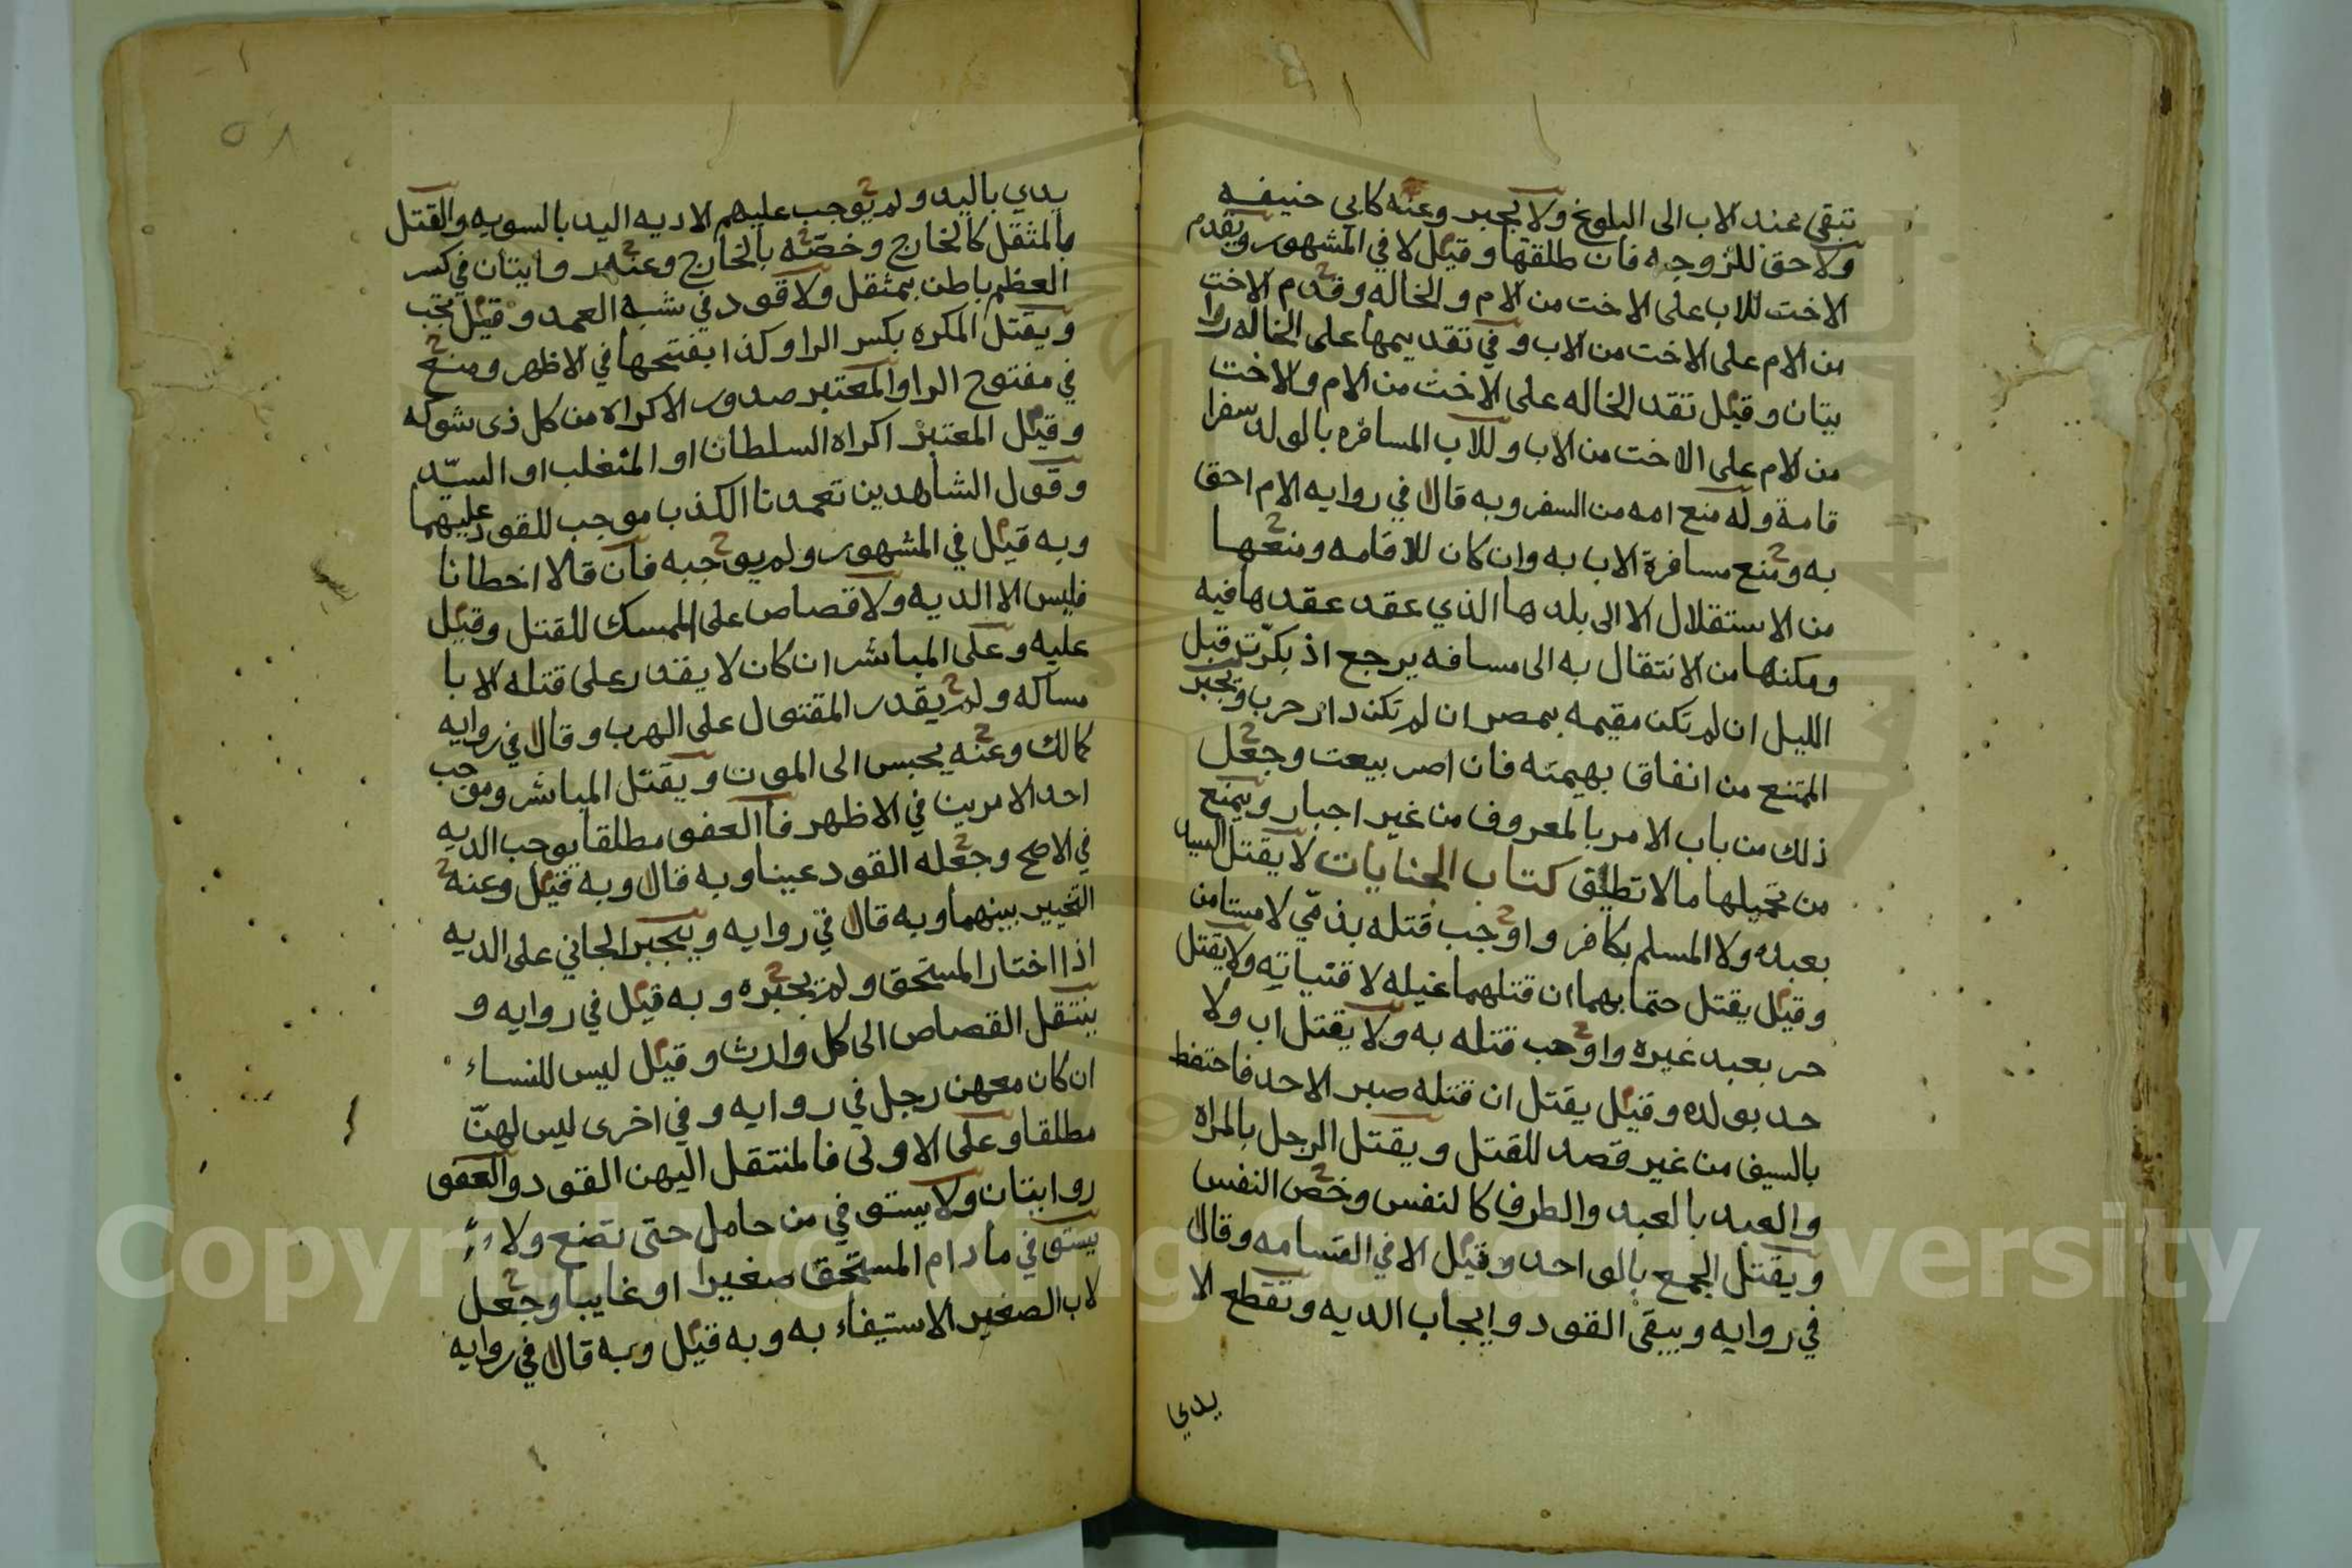 تبقى عند الاب الى البلوغ ولا تجبر وعنه كابي حنيفه
ولاحق للزوجه فان طلقها وقيل لا في المشهور ويقدم
الاخت للاب على الاخت من الام والخاله وقدم الاخت
من الام على الاخت من الاب وفي تقديمها على الخاله روا
يتان وقيل تقد الخاله على الاخت من الام والاخت
من الام على الاخت من الاب وللاب المسافره بالولد سفرا
قامة وله منع امه من السفر وبه قال في روايه الام احق
به ومنع مسافرة الاب به وان كان للاقامه ومنعها
من الاستقلال الا الى بلدها الذي عقد عقدها فيه
ومكنها من الانتقال به الى مسافه يرجع اذ بكرت قبل
الليل ان لم تكن مقيمه بمصر ان لم تكن دار حرب ويجبر
الممتنع من انفاق بهيمته فان اصر بيعت وجعل
ذلك من باب الامر بالمعروف من غير اجبار ويمنع
من تحميلها مالا تطيق كتاب الجنايات لا يقتل السيد
بعبده ولا المسلم بكافر واوجب قتله بذمي لا مستامن
وقيل يقتل حتما بهما ان قتلهما غيله لا قتياته ولا يقتل
حر بعبد غيره واوجب قتله به ولا يقتل اب ولا
جد بولده وقيل يقتل ان قتله صبر الاحد فاحتفظ
بالسيف من غير قصد للقتل ويقتل الرجل بالمراه
والعبد بالعبد والطرف كالنفس وخص النفس
ويقتل الجمع بالواحد وقيل الا في القسامه وقال
في روايه ويبقى القود وايجاب الديه وتقطع الا
يدي
٥٨
يدي باليد ولم يوجب عليهم الا ديه اليد بالسويه والقتل
بالمثقل كالخارج وخصته بالخارج وعنه روايتان في كسر
العظم باطن بمثقل ولا قود في شبه العمد وقيل يجب
ويقتل المكره بكسر الرا وكذا بفتحها في الاظهر ومنع
في مفتوح الرا والمعتبر صدور الاكراه من كل ذى شوكه
وقيل المعتبر اكراه السلطان او المتغلب او السيّد
وقول الشاهدين تعمدنا الكذب موجب للقود عليهما
وبه قيل في المشهور ولم يوجبه فان قالا اخطانا
فليس الا الديه ولا قصاص على الممسك للقتل وقيل
عليه وعلى المباشر ان كان لا يقدر على قتله الا با
مساكه ولم يقدر المقتول على الهرب وقال في روايه
كمالك وعنه يحبس الى الموت ويقتل المباشر وموجب
احد الامرين في الاظهر فالعفو مطلقا يوجب الديه
في الاصح وجعله القود عينا وبه قال وبه قيل وعنه
التخيير بينهما وبه قال في روايه ويجبر الجاني على الديه
اذا اختار المستحق ولم يجبره وبه قيل في روايه و
ينتقل القصاص الى كل وارث وقيل ليس للنساء
ان كان معهن رجل في روايه وفي اخرى ليس لهنّ
مطلقا وعلى الاولى فالمنتقل اليهن القود والعفو
روايتان ولا يستوفي من حامل حتى تضع ولا
يستوفي مادام المستحق صغيرا او غايبا وجعل
لاب الصغير الاستيفاء به وبه قيل وبه قال في روايه
Copyright © King Saud University